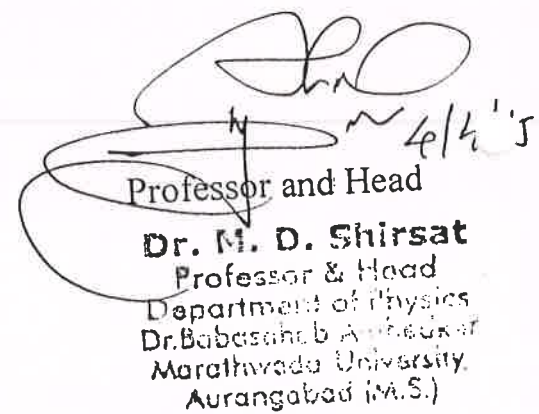 Professor and Head
Dr. M. D. Shirsat
Professor & Head
Department of Physics
Dr.Babasaheb Ambedkar
Marathwada University,
Aurangabad (M.S.)